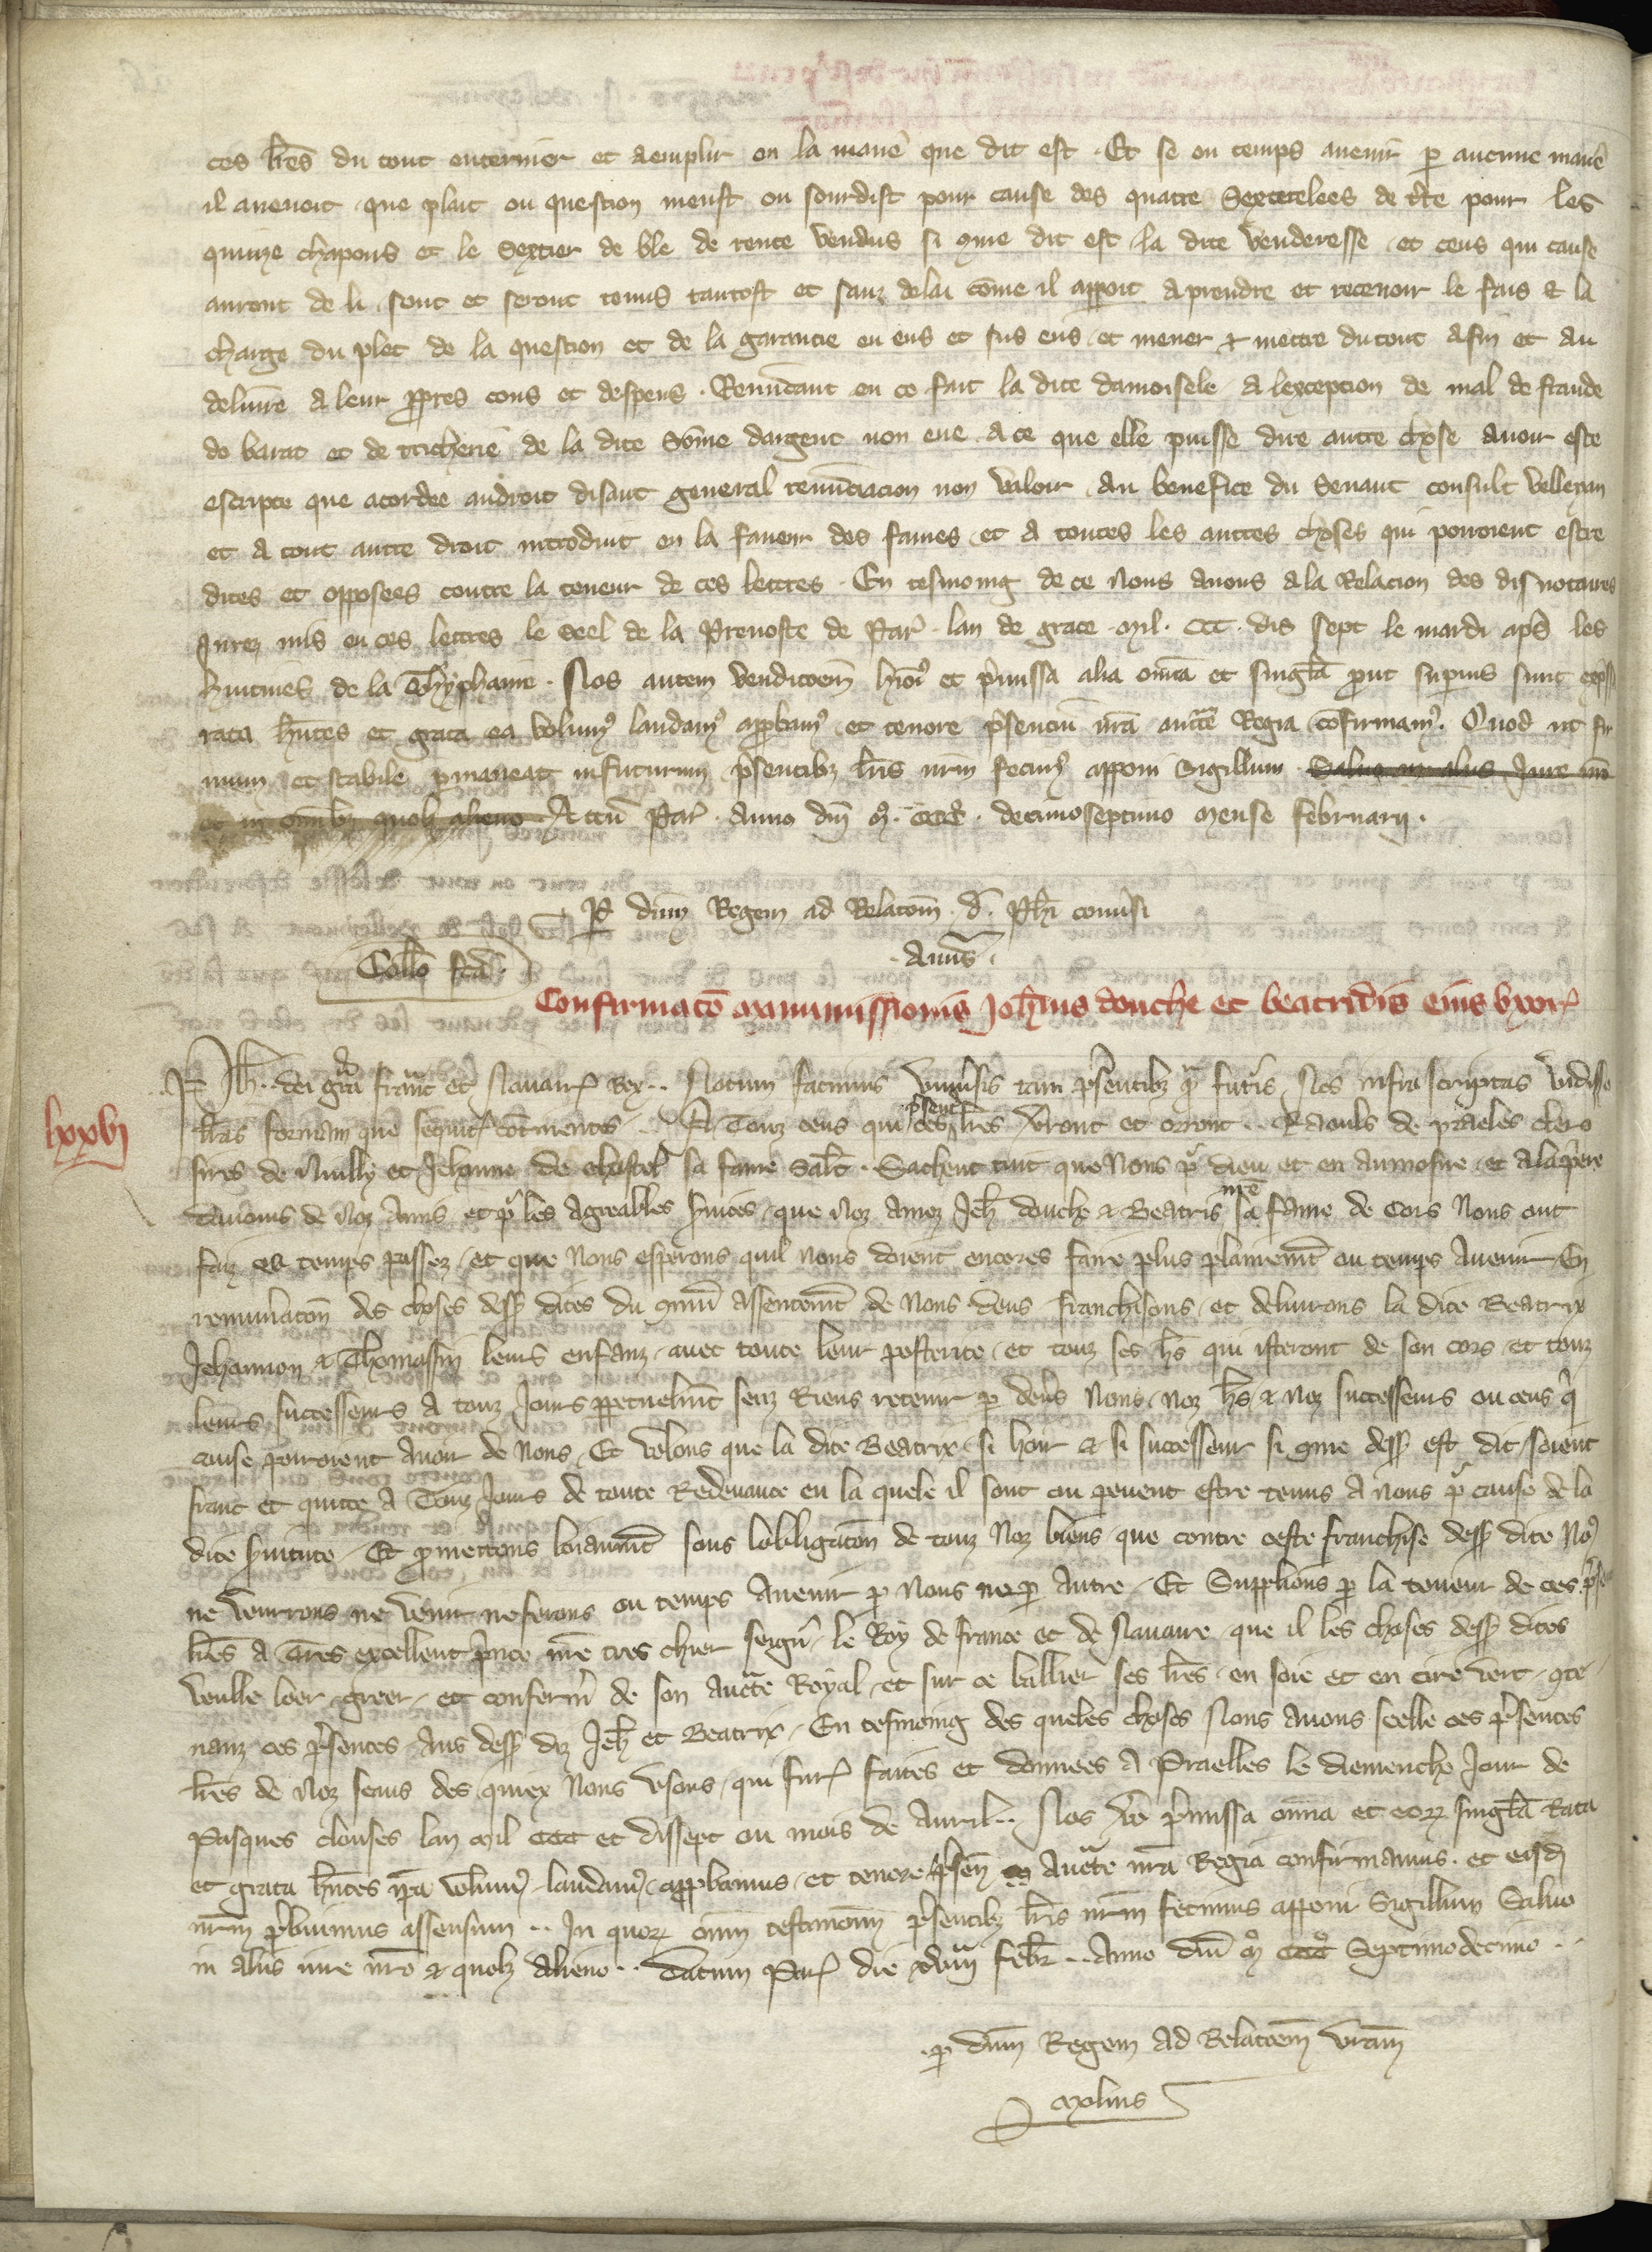 ces lres du tout enteriner et aemplir en la mane que dit est . Et se en temps avenir p aucune mane
il avenoit que plait ou question meust ou sourdist pour cause des quatre Sexterelees de tre pour les
quinze chapons et le Sextier de ble de rente vendus si 9me dit est la dite venderesse et ceus qui cause
auront de li sont et seront tenus tantost et sanz delai come il apport a prendre et recevoir le fais et la
charge du plet de la question et de la garantie en eus et sus eus et mener et mettre du tout a fin et au
delivre a leur ppres cous et despens . Renuncant en ce fait la dite damoisele a lexception de mal de fraude
de barat et de tricherie de la dite Some dargent non eue a ce que elle puisse dire autre chose avoir este
escripte que acordee audroit disant general renunciacion non valoir Au benefice du Senaut consult velleyan
et a tout autre droit introduit en la faveur des fames et a toutes les autres choses qui porroient estre
dites et opposees contre la teneur de ces lettres . En tesmoing de ce Nous avons a la Relacion des dis notaires
Jurez mis en ces lettres le seel de la Prevoste de Par . lan de grace mil . CCC . dis sept le mardi aps les
huitives de la Thyphaine . Nos autem venditoem hioi et pmissa alia omia et singla put supius sunt expssa
rata hntes et grata ea volum9 laudam9 appbam9 et tenore psenciu nra aucte Regia cofirmam9 . Quod ut fir
mum et stabile pmaneat in futurum psentibz lris nrm fecim9 apponi Sigillum Salvo in aliis Jure nro
et in omibz quolz alieno Actu Par . Anno dni M . CCC . decimoseptimo Mense februarii .
P dnm Regem ad Relatom . d . Phi conversi
Collo fca .
Amis .
Confirmato manumissionis Johnis douche et beatridis eius uxor
lxxvi
Ph .. dei gra franc et Navarr Rex .. Notum facimus univsis tam psentibz q futis Nos infra scriptas vidisse
lras formam que sequit continentes .. A Touz ceus qui ces psentes lres vront et orront .. Raouls de praeles clers
sires de Nuilly et Jehanne de chastel sa fame salt . Sachent tuit que Nous p dieu et en aumosne et a la piere
daucuns de Noz Amis et p les agreables svices que Noz Amez Jeh douche et Beatris nre sa fame de Cors Nous ont
faiz es temps passez et que Nous esperons quil Nous doient encores faire plus plainemt ou temps Avenir En
remuneraton des choses dess dites du 9mu assentemt de Nous deus franchisons et delivrons la dite Beatrix
Jehannon et Thomassin leurs enfanz avec toute leur posterite et touz ses hs qui isteront de son cors et touz
leurs successeurs a touz Jours ppetuelmt senz Riens retenir p devs Nous Noz hs et Noz successeurs ou ceus q
cause porroient Avoir de Nous Et volons que la dite Beatrix si hoir et si successeur si 9me dess est dit soient
franc et quitte a Touz Jours de toute Redevance en la quele il sont ou pevent estre tenus A nous p cause de la
dite svitute Et pmettons loiaumt sous lobligaton de touz Noz biens que contre ceste franchise dess dite No9
ne venrrons ne venir ne ferons ou temps Avenir p Nous ne p autre Et Supplions p la teneur de ces pse
lres a Tres excellent pnce nre tres chier seign le Roy de france et de Navarre que il les choses dess dites
veulle loer greer et confermer de son aucte Royal et sur ce baillier ses lres en soie et en cire vert 9te
nanz ces psentes Aus dess diz Jeh et Beatrix En tesmoing des queles choses Nous Avons seelle ces psentes
lres de Noz seaus des quiex Nous usons qui fur faites et donnees A Praelles le diemenche Jour de
Pasques closes lan Mil CCC et dissept ou mois de Avril .. Nos vo pmissa omia et eorz singla Rata
et grata hntes ipa volum9 laudam9 appbamus et tenore psen aucte nra Regia confirmamus . et eisd
nrm pbuimus assensum .. In quorz omi testimoniu psentibz lris nrm fecimus apponi Sigillum Salvo
in aliis iure nro et quolz Alieno .. Datum Par die xviii febr .. Anno dni M CCC Septimodecimo ..
p dnm Regem ad Relatoem vram
Molins